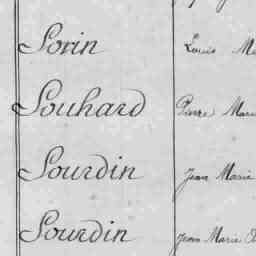 Sorin Louis
Souhard Pierre Marie
Sourdin Jean Marie
Sourdin Jean Marie